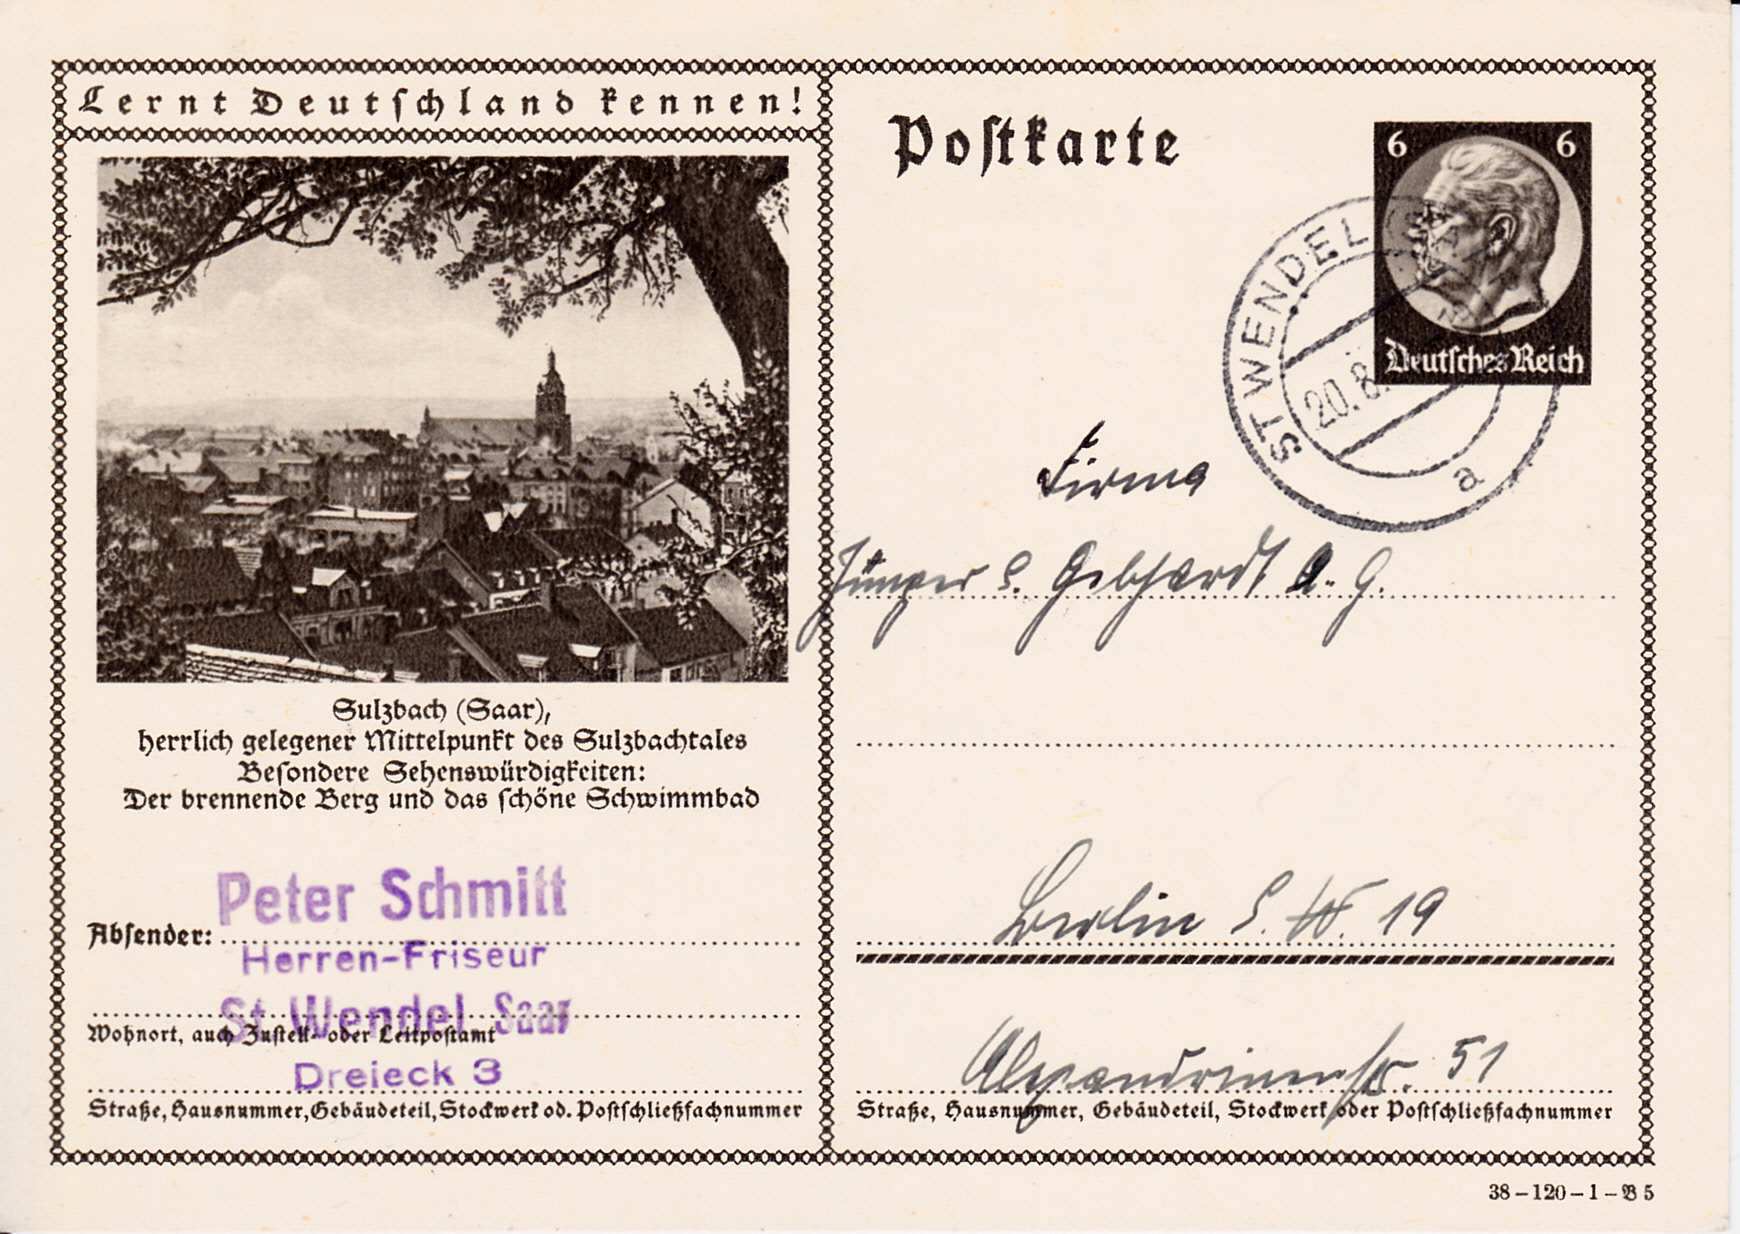 Lernt Deutschland kennen!
Sulzbach (Saar),
herrlich gelegener Mittelpunkt des Sulzbachtales
Besondere Sehenswürdigkeiten:
Der brennende Berg und das schöne Schwimmbad
Peter Schmitt
Absender:
Herren-Friseur
St. Wendel Saar
Wohnort, auch Zustell- oder Leitpostamt
Dreieck 3
Straße, Hausnummer, Gebäudeteil, Stockwerk od. Postschließfachnummer
Postkarte
6 6
Deutsches Reich
ST WENDEL
20.8.
a
Firma
Jünger & Gebhardt A. G.
Berlin S. W. 19
Alexandrinenstr. 51
Straße, Hausnummer, Gebäudeteil, Stockwerk oder Postschließfachnummer
38-120-1-B 5